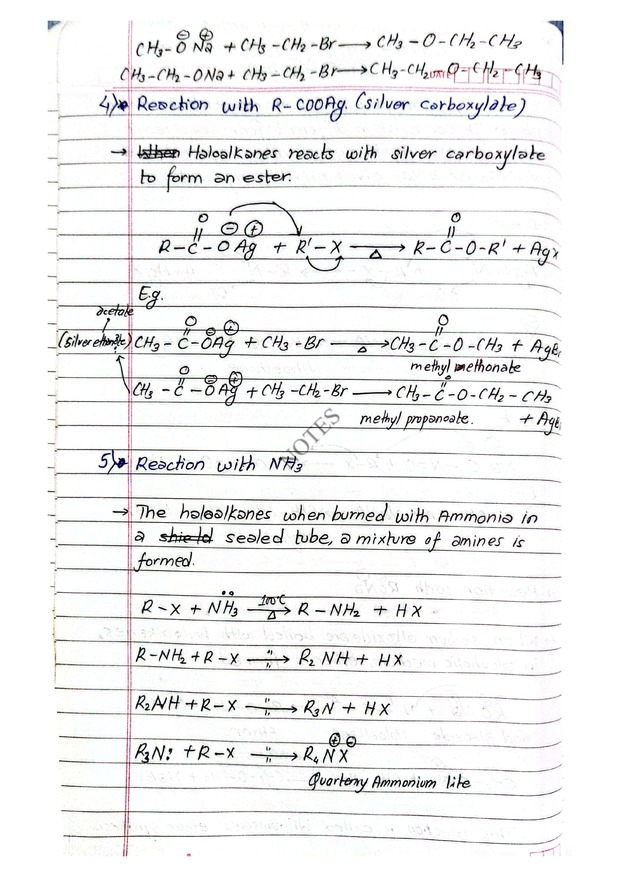 CH3-O⊖ Na⊕ + CH3-CH2-Br → CH3-O-CH2-CH3
CH3-CH2-ONa + CH3-CH2-Br → CH3-CH2-O-CH2-CH3
4) Reaction with R-COOAg. (silver carboxylate)
→ Haloalkanes reacts with silver carboxylate
to form an ester.
O ⊖ ⊕ O
R-C-O Ag + R'-X → R-C-O-R' + Agx
Δ
E.g.
acetate
O ⊖ ⊕ O
CH3-C-OAg + CH3-Br → CH3-C-O-CH3 + AgBr
Δ
methyl methonate
O ⊖ ⊕ O
CH3-C-OAg + CH3-CH2-Br → CH3-C-O-CH2-CH3
methyl propanoate. + AgB
NOTES
5) Reaction with NH3
→ The haloalkanes when burned with Ammonia in
a shield sealed tube, a mixture of amines is
formed.
R-X + N̈H3 100°C → R-NH2 + HX
Δ
R-NH2 + R-X —"→ R2NH + HX
R2NH + R-X —"→ R3N + HX
R3N: + R-X —"→ R4N⊕X⊖
Quarteny Ammonium lite